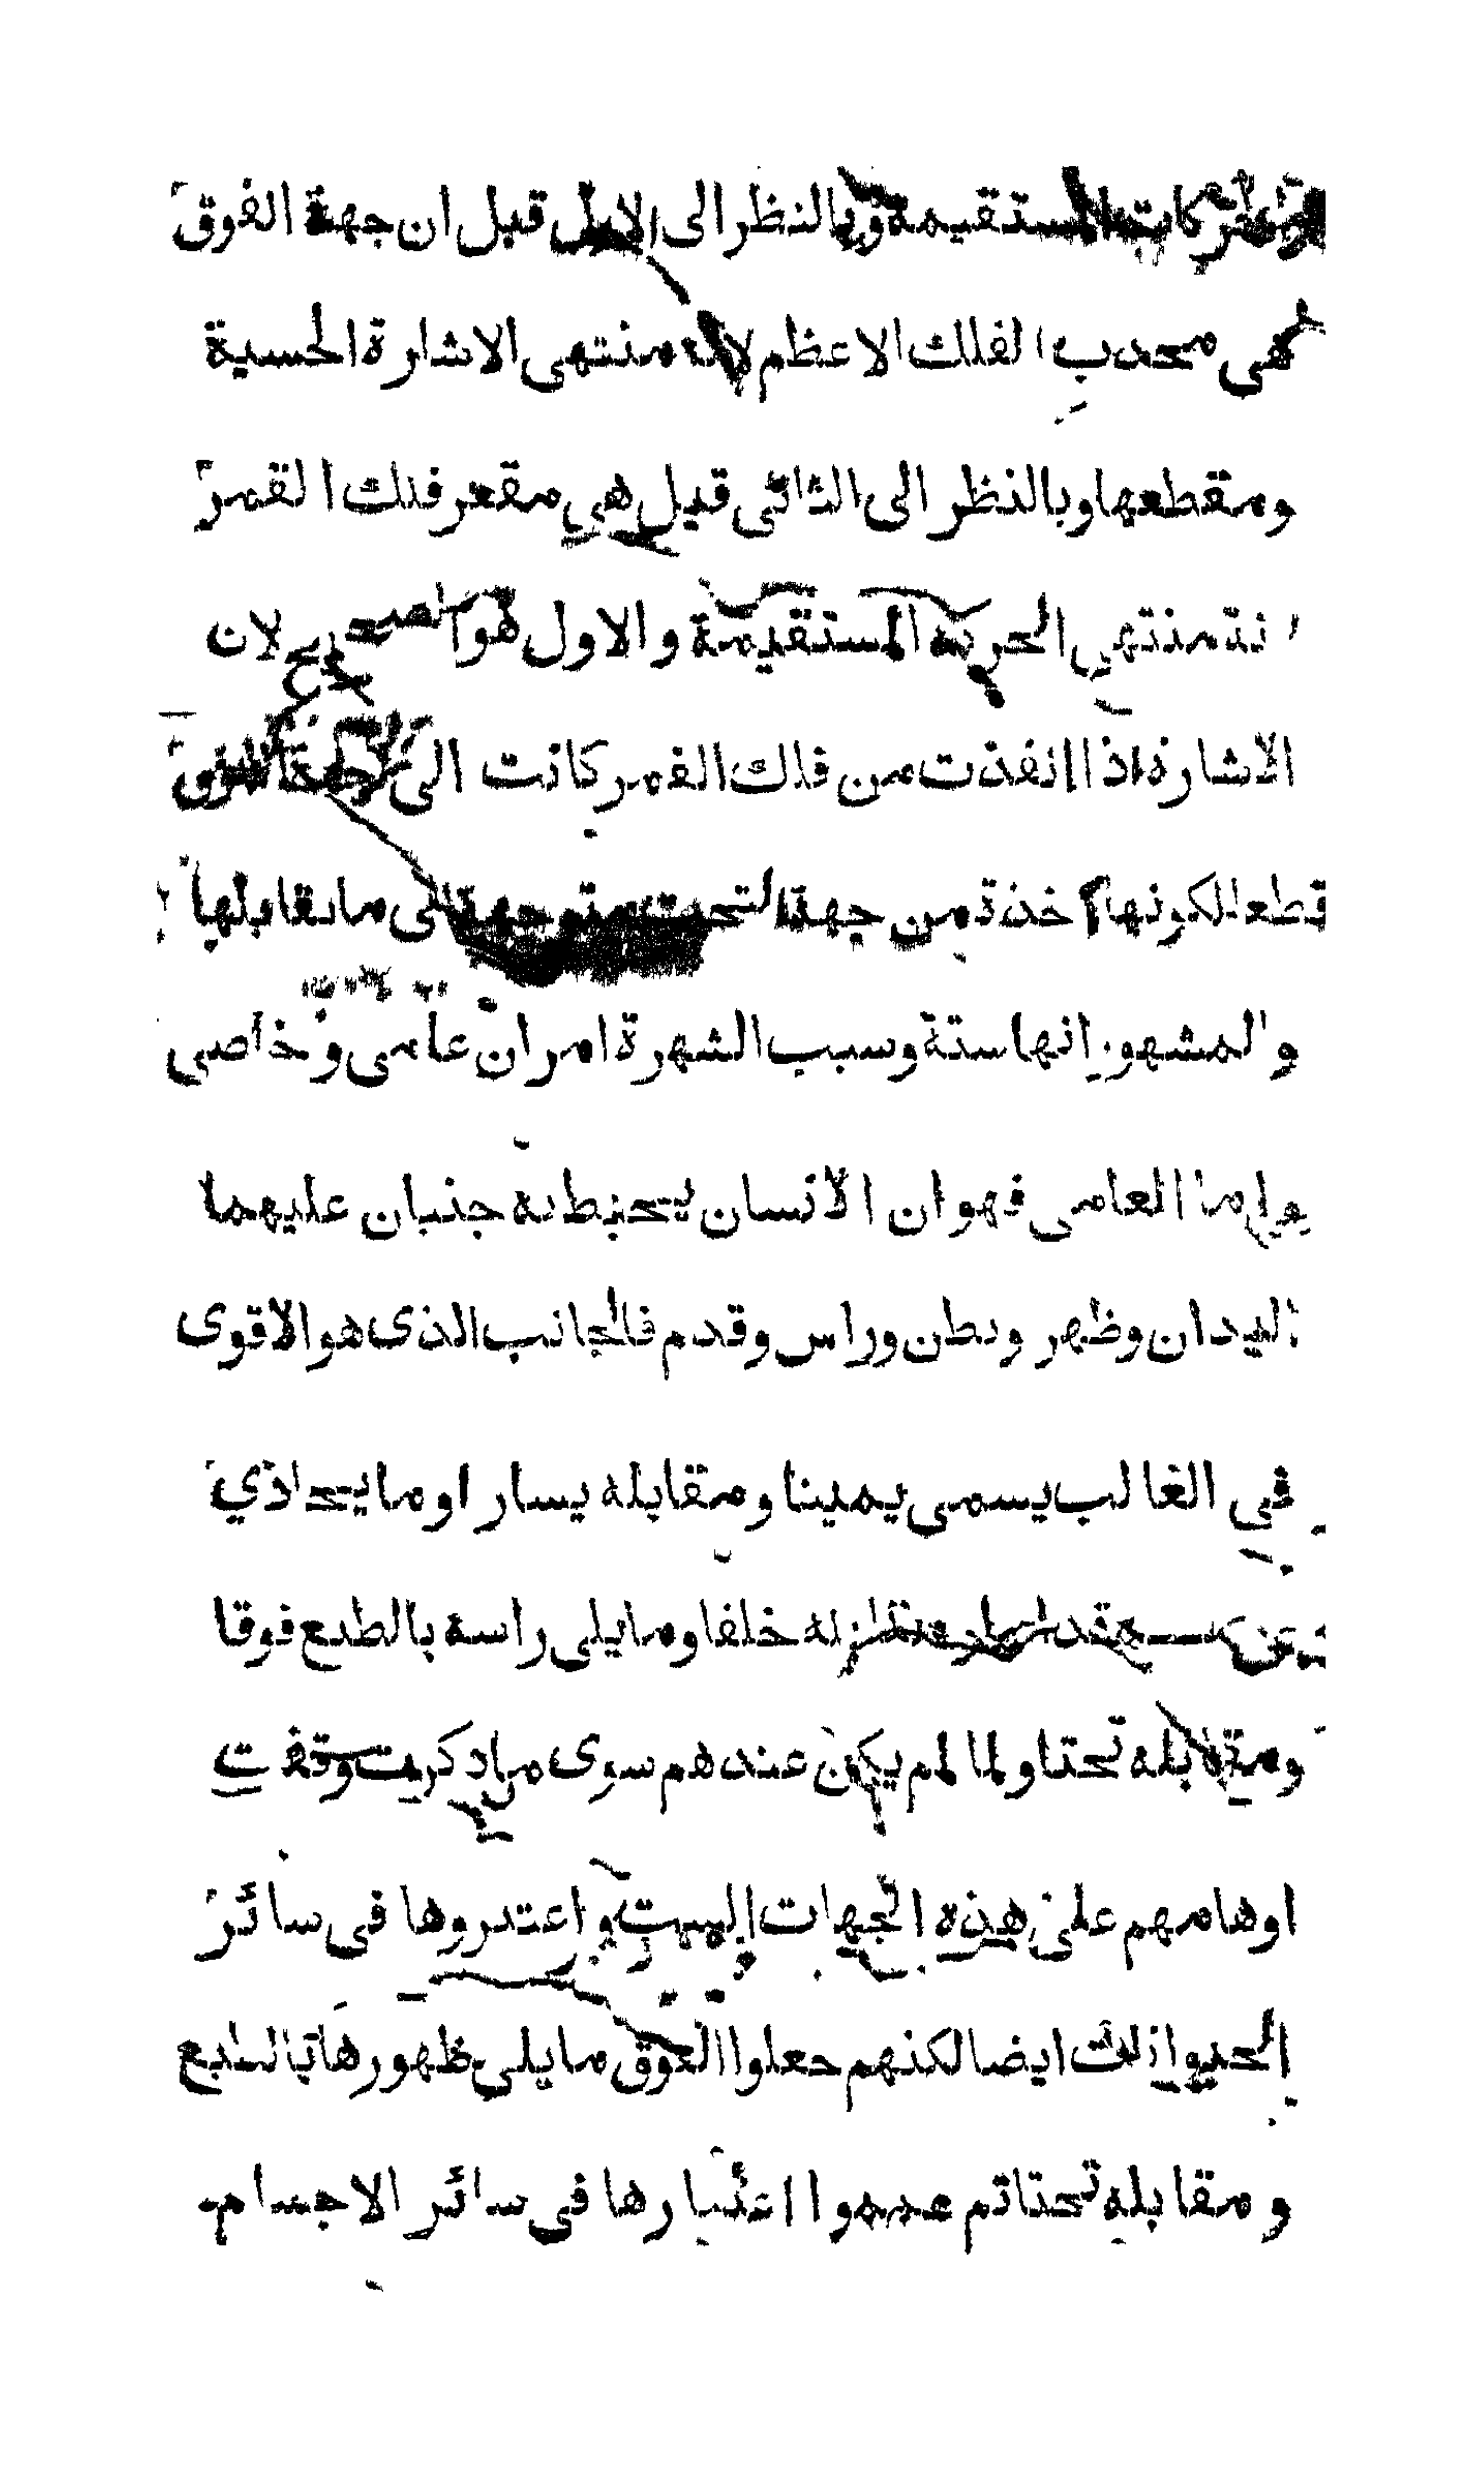 الحركات المستقيمة وبالنظر الى الاول قيل ان جهة الفوق
هي محدب الفلك الاعظم لانه منتهى الاشارة الحسية
ومقطعها وبالنظر الى الثانى قيل هى مقعر فلك القمر
انه منتهى الحركة المستقيمة والاول هو الصحيح لان
الاشارة اذا انفذت من فلك القمر كانت الى جهة الفوق
قطعا لكونها آخذة من جهة التحت متوجهة الى ما يقابلها
والمشهور انها ستة وسبب الشهرة امران عامى وخاصى
واما العامى فهو ان الانسان يحيط به جنبان عليهما
اليدان وظهر وبطن وراس وقدم فالجانب الذى هو الاقوى
في الغالب يسمى يمينا ومقابله يسارا وما يحاذي
خلفا وما يلى راسه بالطبع فوقا
ومقابله تحتا ولما لم يكن عندهم سوى ما ذكرت وقفت
اوهامهم على هذه الجهات الست واعتبروها فى سائر
الحيوانات ايضا لكنهم جعلوا الفوق ما يلى ظهورها بالطبع
ومقابله تحتا ثم عمموا اعتبارها فى سائر الاجسام